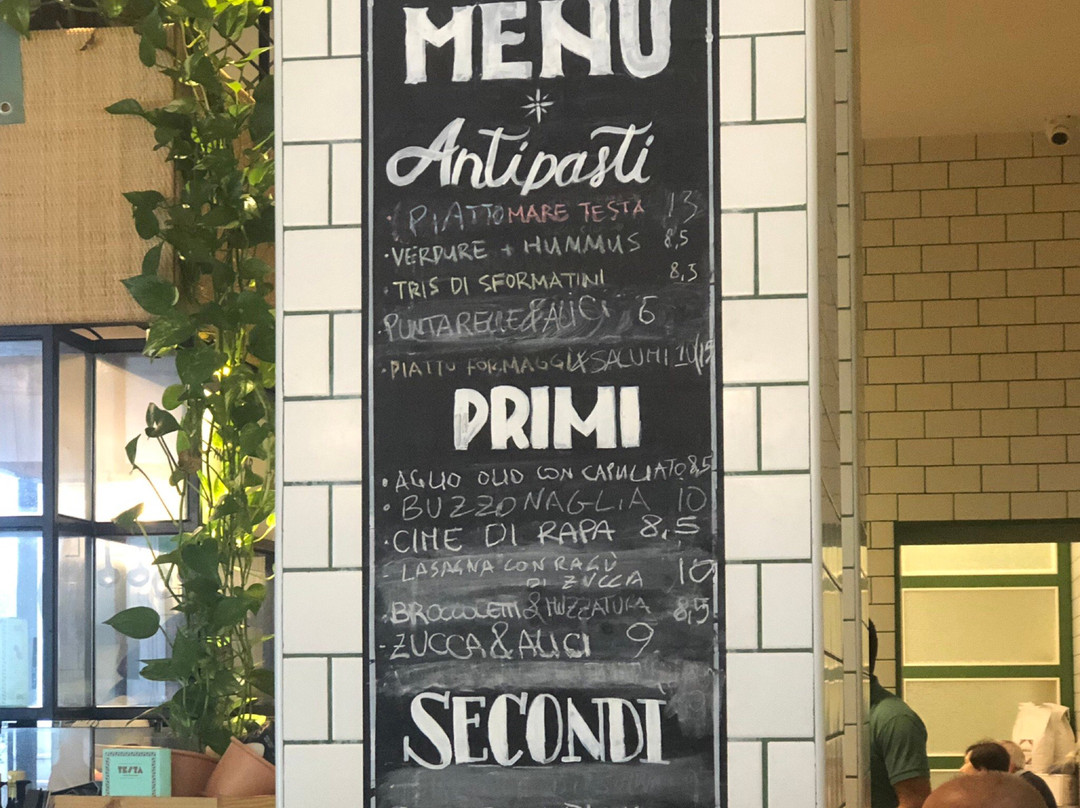 MENU
Antipasti
· PIATTO MARE TESTA 13
· VERDURE + HUMMUS 8,5
· TRIS DI SFORMATINI 8,5
· PUNTARELLE & ALICI 6
· PIATTO FORMAGGI & SALUMI 10/15
PRIMI
· AGLIO OLIO CON CAPULIATO 8,5
· BUZZONAGLIA 10
· CIME DI RAPA 8,5
- LASAGNA CON RAGÙ
DI ZUCCA 10
· BROCCOLETTI & MUZZATURA 8,5
- ZUCCA & ALICI 9
SECONDI
TESTA